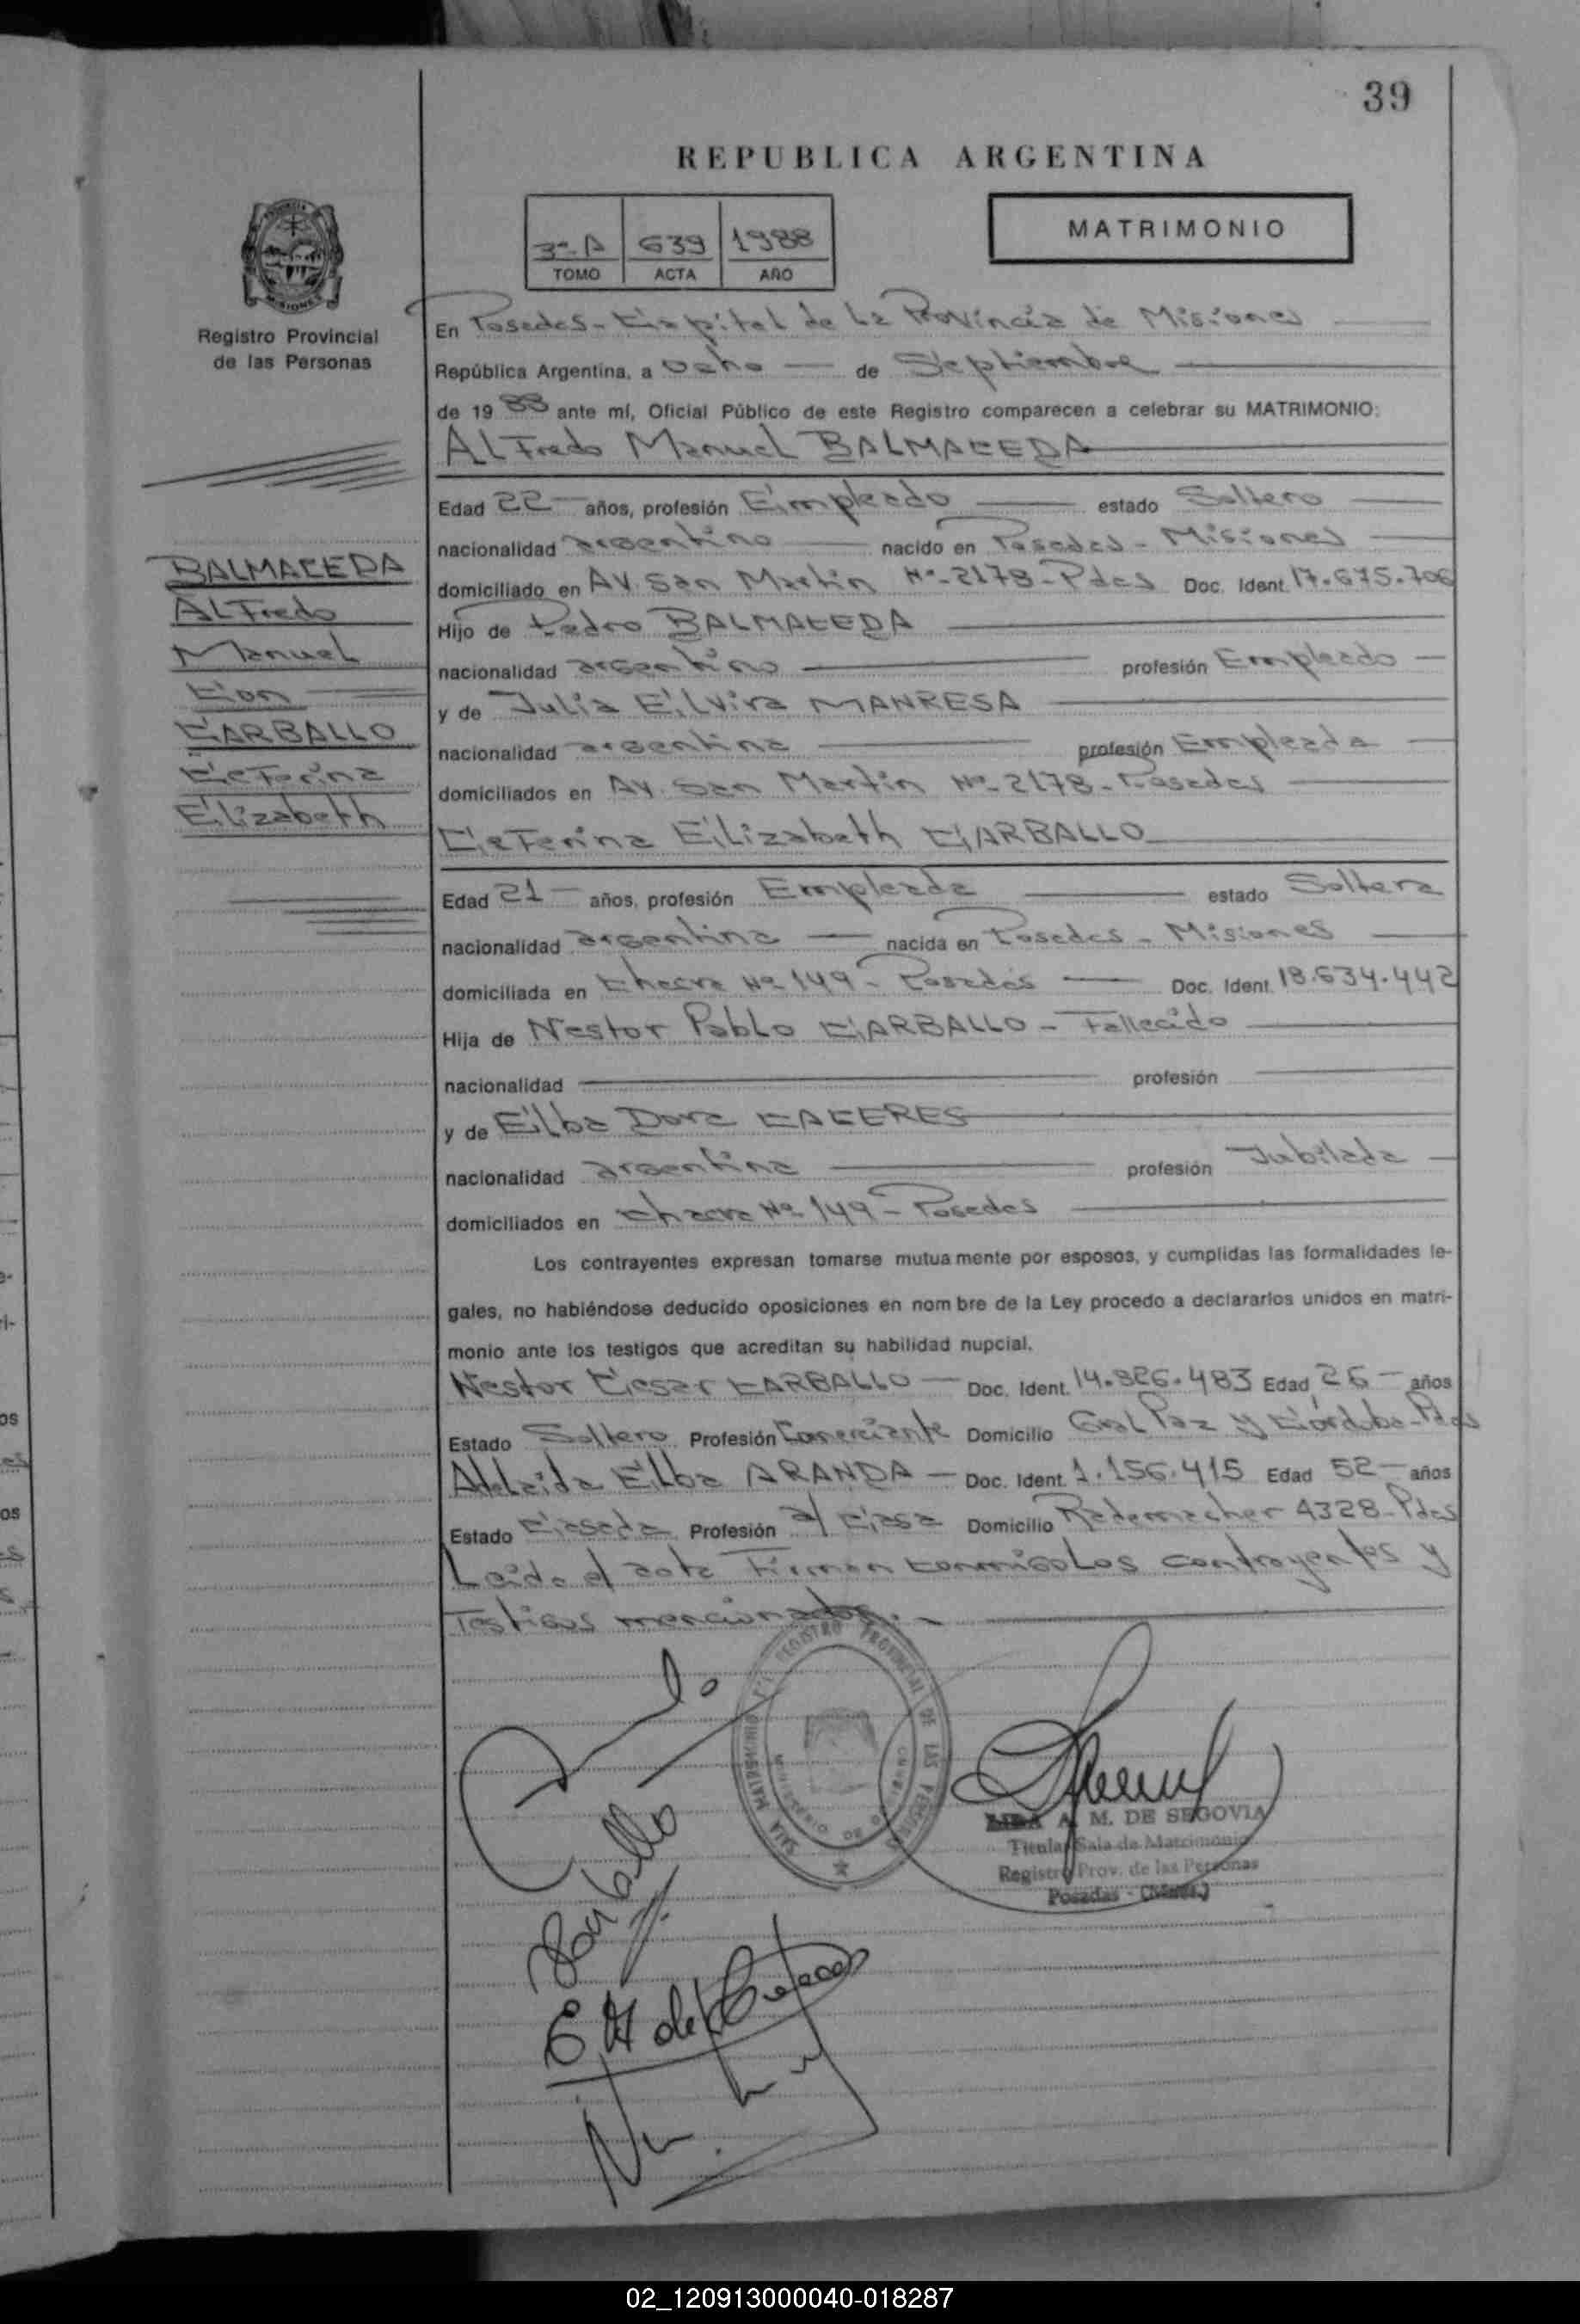 39
REPUBLICA ARGENTINA
3º A 639 1988
TOMO ACTA AÑO
MATRIMONIO
Registro Provincial
de las Personas
En Posadas - Capital de la Provincia de Misiones
República Argentina, a Ocho de Septiembre
de 1988 ante mí, Oficial Público de este Registro comparecen a celebrar su MATRIMONIO:
Alfredo Manuel BALMACEDA
Edad 22 años, profesión Empleado estado Soltero
nacionalidad argentino nacido en Posadas - Misiones
domiciliado en Av. San Martin Nº 2178 - Pdas Doc. Ident. 17.675.706
Hijo de Pedro BALMACEDA
nacionalidad argentino profesión Empleado
y de Julia Elvira MANRESA
nacionalidad argentina profesión Empleada
domiciliados en Av. San Martin Nº 2178 - Posadas
Ceferina Elizabeth CARBALLO
Edad 21 años, profesión Empleada estado Soltera
nacionalidad argentina nacida en Posadas - Misiones
domiciliada en Chacra Nº 149 - Posadas Doc. Ident. 18.634.442
Hija de Nestor Pablo CARBALLO - Fallecido
nacionalidad profesión
y de Elba Dora CACERES
nacionalidad argentina profesión Jubilada
domiciliados en Chacra Nº 149 - Posadas
Los contrayentes expresan tomarse mutuamente por esposos, y cumplidas las formalidades le-
gales, no habiéndose deducido oposiciones en nombre de la Ley procedo a declararlos unidos en matri-
monio ante los testigos que acreditan su habilidad nupcial.
Nestor Cesar CARBALLO Doc. Ident. 14.926.483 Edad 26 años
Estado Soltero Profesión Comerciante Domicilio Gral Paz y Córdoba - Pdas
Adelaida Elba ARANDA Doc. Ident. 1.156.415 Edad 52 años
Estado Casada Profesión a/ Casa Domicilio Rademacher 4328 - Pdas
Leida el acta Firman conmigo Los contrayentes y
Testigos mencionados.-
BALMACEDA
Alfredo
Manuel
Con
CARBALLO
Ceferina
Elizabeth
SALA MATRIMONIO DEL REGISTRO PROVINCIAL DE LAS PERSONAS
A. M. DE SEGOVIA
Titular Sala de Matrimonio
Registro Prov. de las Personas
Posadas - (Mnes.)
Carballo
02_120913000040-018287